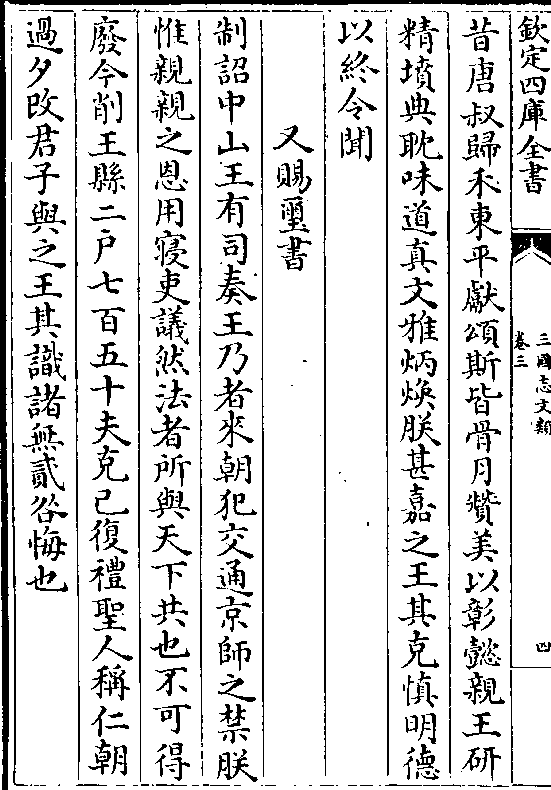 欽定四庫全書
三國志文類
卷三
四
昔唐叔歸禾東平獻頌斯皆骨月贊美以彰懿親王研
精墳典耽味道真文雅炳煥朕甚嘉之王其克慎明德
以終令聞
又賜璽書
制詔中山王有司奏王乃者來朝犯交通京師之禁朕
惟親親之恩用寢吏議然法者所與天下共也不可得
廢今削王縣二户七百五十夫克己復禮聖人稱仁朝
過夕改君子與之王其識諸無貳咎悔也